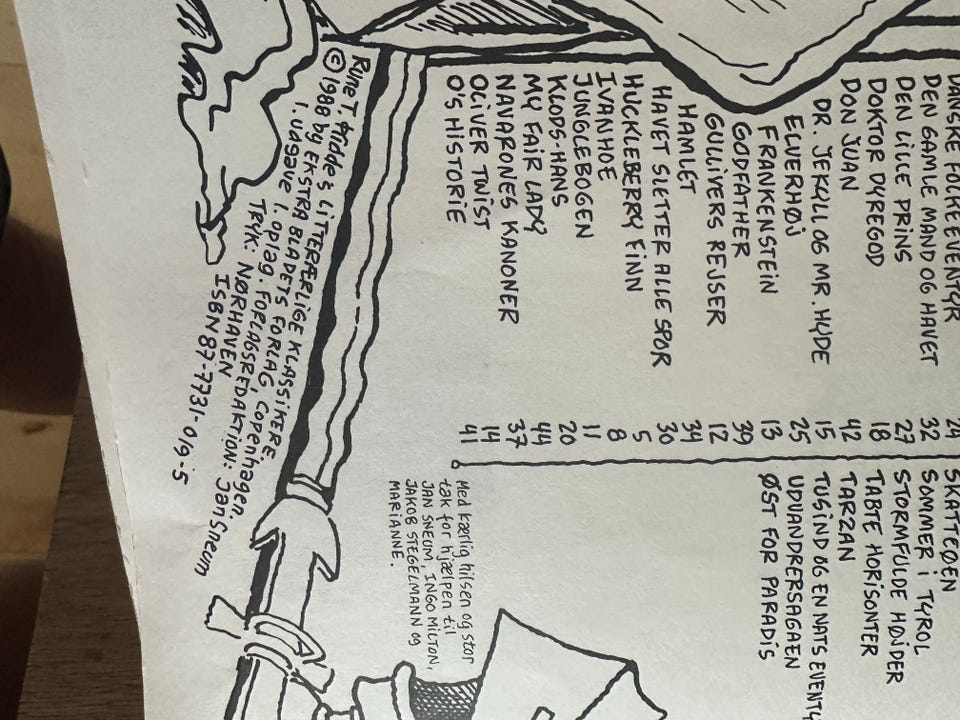 DANSKE FOLKEEVENTYR 24
DEN GAMLE MAND OG HAVET 32
DEN LILLE PRINS 27
DOKTOR DYREGOD 18
DON JUAN 42
DR. JEKYLL OG MR. HYDE 15
ELVERHØJ 25
FRANKENSTEIN 13
GODFATHER 39
GULLIVERS REJSER 12
HAMLET 34
HAVET SLETTER ALLE SPOR 30
HUCKLEBERRY FINN 5
IVANHOE 8
JUNGLEBOGEN 11
KLODS-HANS 20
MY FAIR LADY 44
NAVARONES KANONER 37
OLIVER TWIST 14
O's HISTORIE 41
SKATTEØEN
SOMMER I TYROL
STORMFULDE HØJDER
TABTE HORISONTER
TARZAN
TUSIND OG EN NATS EVENTY
UDVANDRERSAGAEN
ØST FOR PARADIS
Med kærlig hilsen og stor
tak for hjælpen til
JAN SNEUM, INGO MILTON,
JAKOB STEGELMANN og
MARIANNE.
Rune T. Kidde's LITTERÆRLIGE KLASSIKERE
© 1988 by EKSTRA BLADETS FORLAG, Copenhagen.
1. udgave 1. oplag. FORLAGSREDAKTION: Jan Sneum
TRYK: NØRHAVEN
ISBN 87-7731-019-5